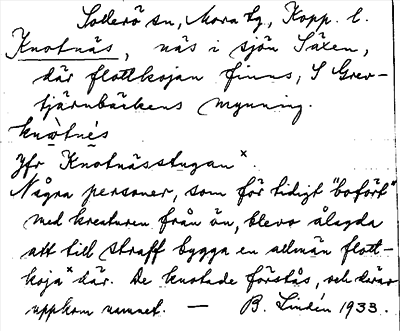 Sollerö sn, Mora tg, Kopp. l.
Knotnäs, näs i sjön Säxen,
där flottkojan finns, S Grev-
tjärnbäckens mynning.
knøtnés
Jfr Knotnässtugan x.
Några personer, som för tidigt "boført"
med kreaturen från ön, blevo ålagda
att till straff bygga en allmän flott-
koja x där. De knotade förstås, och därav
uppkom namnet. — B. Lindén 1933.